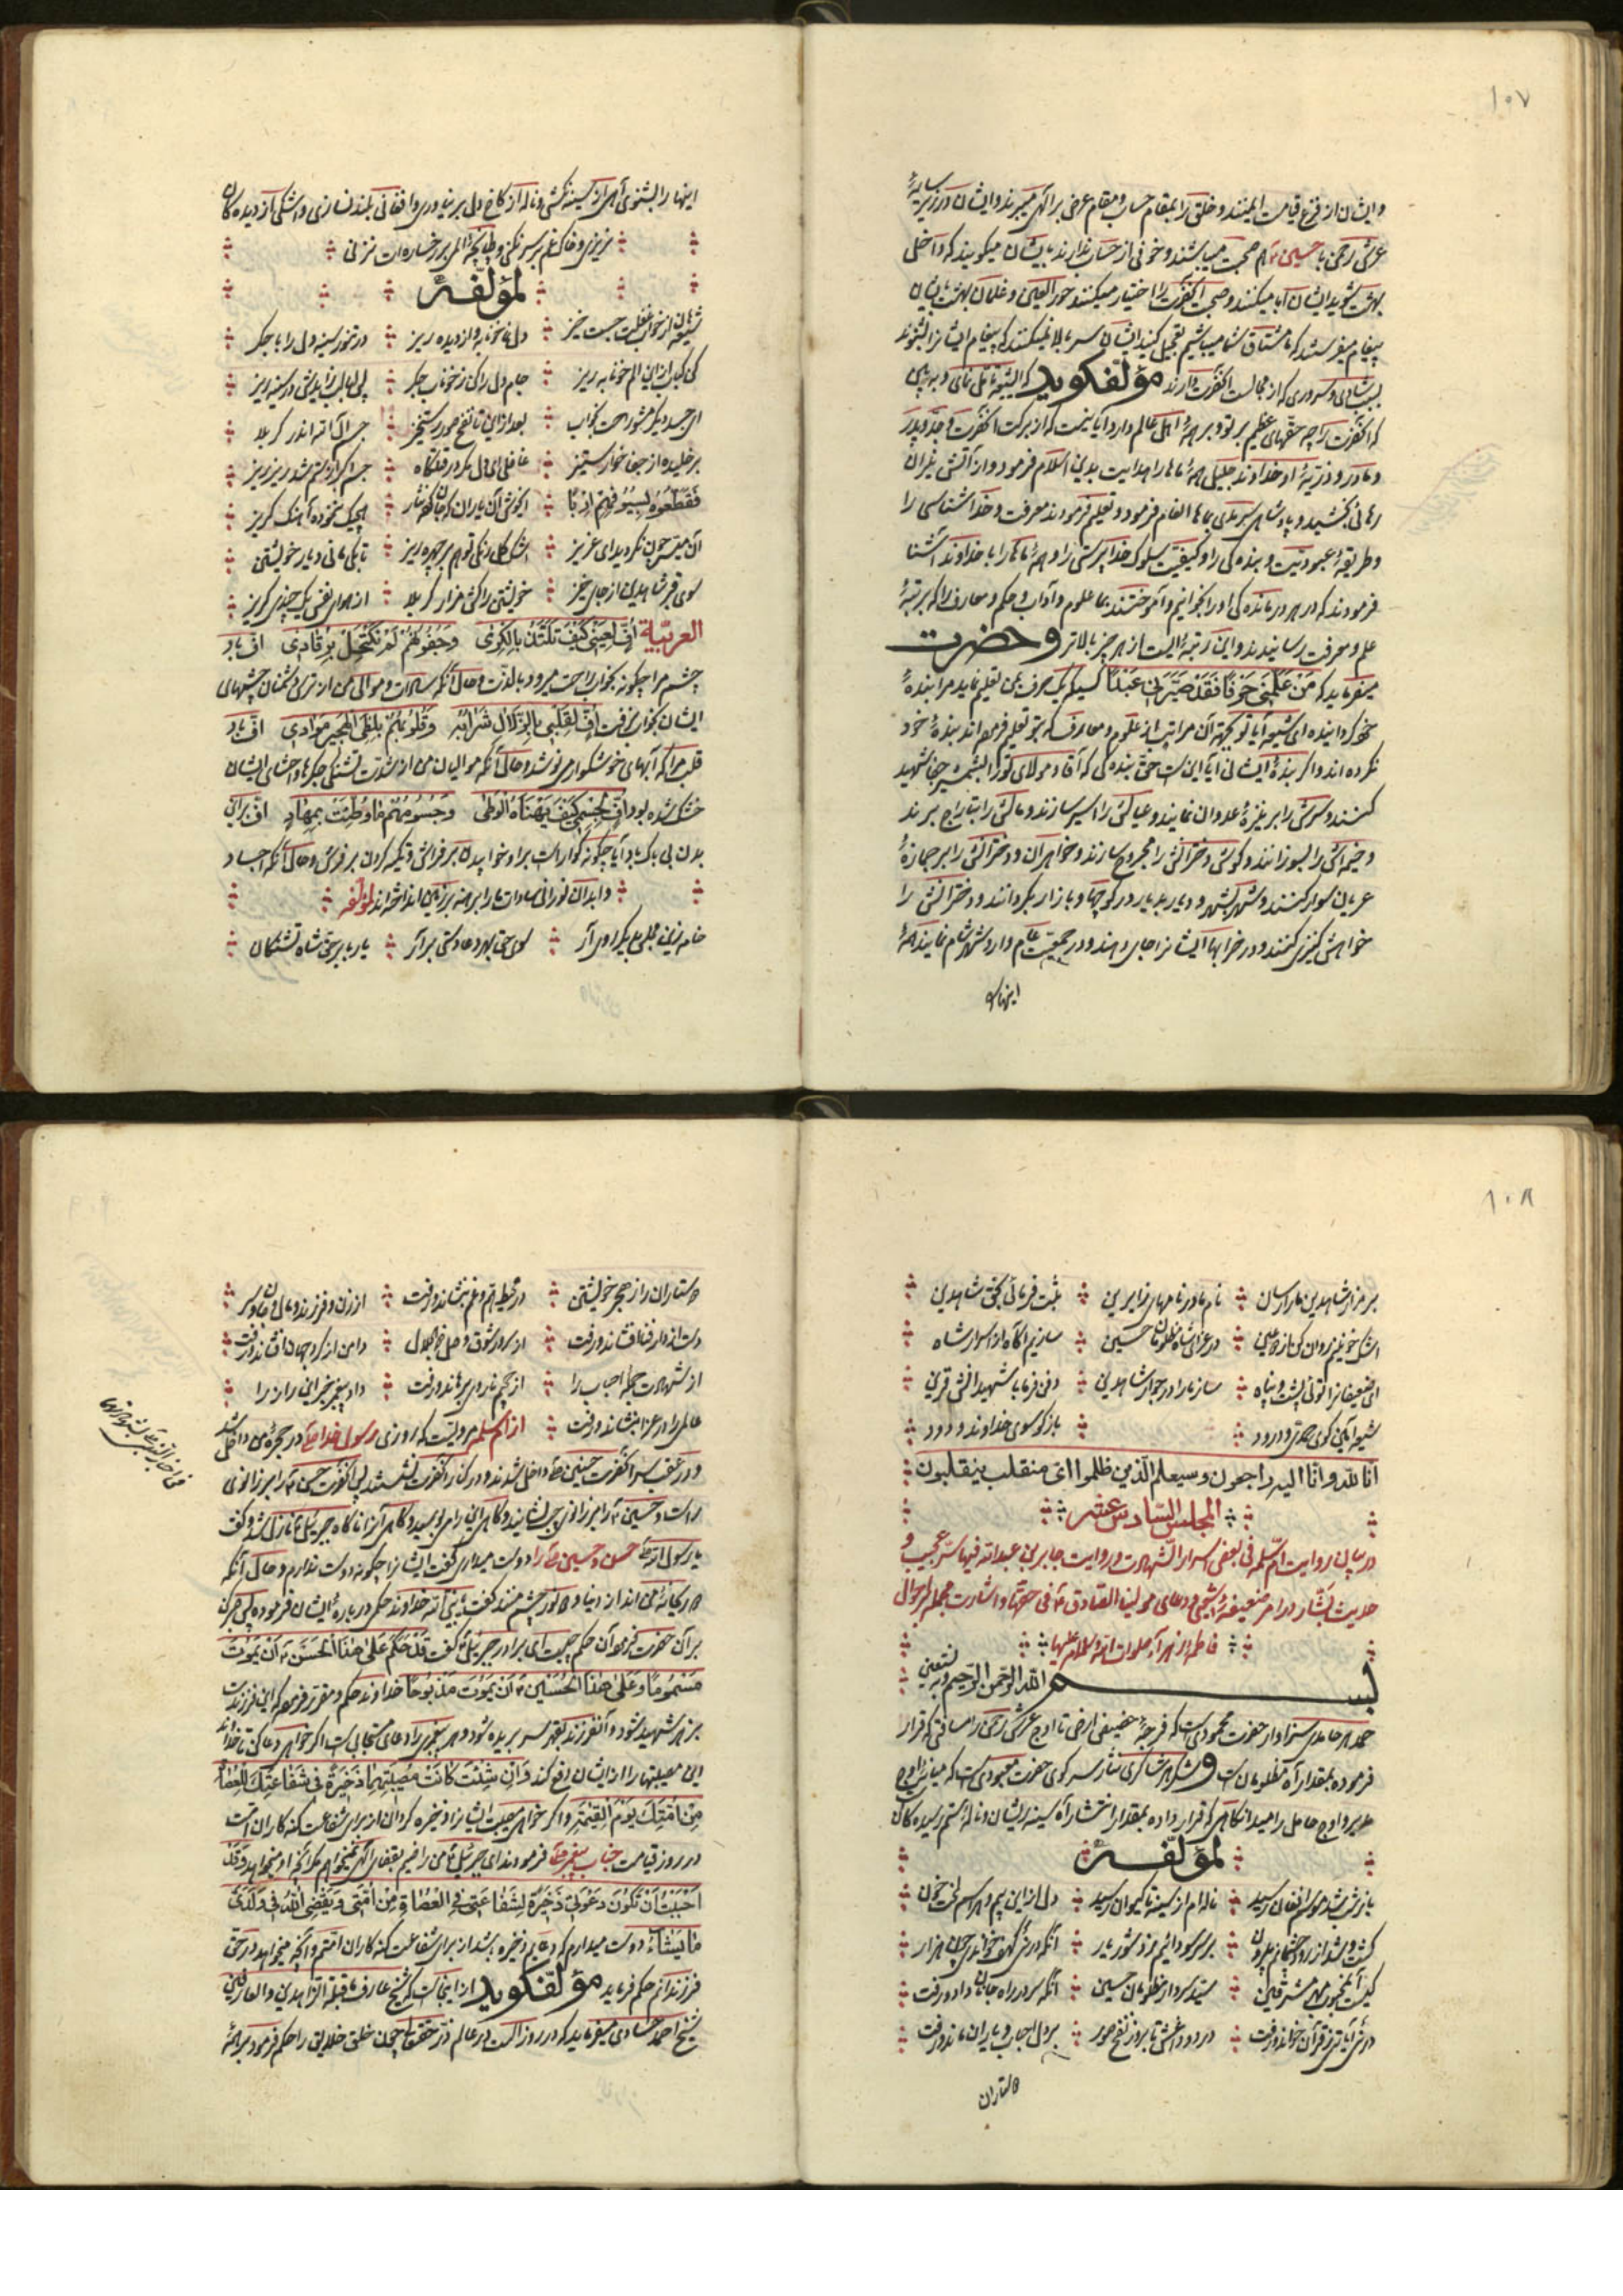 ۱۰۷
وایشان از فزع قیامت ایمنند و خلق را بمقام حساب و مقام عرض برالهی میبرند و ایشان در زیر سایهٔ
عرش رحمن با حسین ع هم صحبت میباشند و خوفی از حساب ندارند بایشان میگویند که داخل
بهشت شوید ایشان ابا میکنند و صحبت آنحضرت را اختیار میکنند حور العین و غلمان بهشت بایشان
پیغام میفرستند که ما مشتاق شما میباشیم تعجیل کنید ایشان سر بالا نمیکنند که پیغام ایشانرا بشنوند
بسبب شادی و سروری که از مجالست آنحضرت دارند مؤلف گوید که ای شیعه تأمل نمای و ببین
که آنحضرت را چه حقهای عظیم بر تو و بر همهٔ اهل عالم دارد آیا نیست که از برکت آنحضرت و جد و پدر
و مادر و ذریهٔ او خداوند جلیل همهٔ ماها را هدایت بدین اسلام فرمود و از آتش نیران
رهائی بخشید و پادشاهی سرمدی بماها انعام فرمود و تعلیم فرمودند معرفت و خداشناسی را
و طریقهٔ عبودیت و بنده کی را و کیفیت سلوک خدا پرستی را و همهٔ ماها را با خداوند آشنا
فرمودند که در هر درمانده کی او را بخوانیم و آموختند بما علوم و آداب و حکم و معارف را که بمرتبهٔ
علم و معرفت رسانیدند و این رتبهٔ ایست از هر چیز بالاتر و حضرت
میفرماید که مَنْ عَلَّمَنی حَرفًا فَقَد صَیَّرَنی عَبدًا کسیکه یک حرف بمن تعلیم نماید مرا بندهٔ
خود گردانیده ای شیعه آیا تو بجهة آن مراتب از علوم و معارف که بتو تعلیم فرموده اند بندهٔ خود
نکرده اند و اگر بندهٔ ایشانی آیا این است حق بنده کی که آقا و مولای تو را بشمشیر جفا شهید
کنند و سرش را بر نیزهٔ عدوان نمایند و عیالش را اسیر سازند و مالش را بتاراج برند
و خیمه اش را بسوزانند و گوش دخترانش را مجروح سازند و خواهران و دخترانش را بر جمازهٔ
عریان سوار کنند و شهر بشهر و دیار بدیار در کوچها و بازار بگردانند و دخترانش را
خواهش کنیزی کنند و در خرابها ایشانرا جای دهند و در جمعیت عام وارد شهر شام نمایند همهٔ
اینها را
اینها را بشنوی آهی از سینه نکشی و ناله از کاخ دل بر نیاوری و افغانی بلند نسازی و اشکی از دیده کان
نریزی و خاک غم بر سر نکنی و طپانچهٔ الم بر رخساره ات نزنی
لمؤلفهٔ
شیعیان از خواب غفلت جست خیز دل نما خونابه و از دیده ریز در تنور سینه دل را با جگر
کن کباب از این الم خونابه ریز جام دل را کن ز خوناب جگر
بعد از این تا نفخ صور رستخیز جسم آل الله اندر کربلا
بر خلیده از جفا خار ستیز غافلی ای دل مگر در قتلگاه جسم اکبر از ستم شد ریز ریز
فَقَطَّعُوهُ بِسُیُوفِهِمْ إِربًا
آن میسر چون نگردید ای عزیز اشک گلرنگی تو هم بر چهره ریز تا بکی مانی دیار خویشتن
سوی قبر شاه دین از جای خیز خویشتن را کش مزار کربلا از هوای نفس یک چندی گریز
العربیّة أُفٍّ لِعَینی کَیفَ تَلتَذُّ بِالکَری وَجُفُونُهُم لَمْ تَکتَحِلْ بِرُقادی اف باد
چشم مرا چگونه بخواب راحت میرود بالذت و حال آنکه سادات و موالی من از ترس دشمنان چشمهای
ایشان بخواب نرفت أُفٍّ لِقَلبی بِالزُّلالِ شَرابُهُ وَقُلُوبُهُم بِلَظَی الهَجیرِ صَوادی اف باد
قلب مرا که آبهای خوشگوار مینوشد و حال آنکه موالیان من از شدت تشنگی جگرها و احشای ایشان
خشک شده بود أُفٍّ لِجِسمی کَیفَ یَهنَاهُ الوَطٰی وَجُسُومُهُم ما وُطِّئَتْ بِمِهادٍ اف بر این
بدن بی باک باد آیا چگونه گوارا است براه خوابیدن بر فراش و تکیه کردن بر فرش و حال آنکه اجساد
و ابدان نورانی سادات ما را برهنه بر زمین انداخته اند لمؤلفه
سوی حق بهر دعا دستی برآر یا رب از بهر حق شاه تشنگان
۱۰۸
بر مزار شاه دین ما را رسان نام ما در نامهای زایرین ثبت فرمائی بحق شاه دین
اشک خونینم روان کن از دو عین در عزای شاه مظلومان حسین سازیم آگاه از اسرار شاه
ای ضعیفانرا توئی پشت و پناه ساز ما را در جوار شاه دین دفن فرما با شهیدانش قرین
شیعه ایکی گوی صدق و درود باز گو سوی خداوند ودود
انا لله وانا الیه راجعون وسیعلم الذین ظلموا ای منقلب ینقلبون
المجلس السادس عشر
در بیان روایت ام سلمه فی بعض اسرار الشهادت و روایت جابر بن عبد الله فیها سر عجیب و
حدیث بشار در امر ضعیفهٔ شیعی و دعای مولینا الصادق ع فی حقها و اشارت مجمله باحوال
فاطمه زهرآء صلوات الله و سلامه علیها
بسم الله الرحمن الرحیم وبه نستعین
حمد هر حامدی سزاوار حضرت محمودی است که فرجهٔ حضیض ارض تا اوج عرش رحمن را مسافتی که قرار
فرموده بمقدار آه مظلومان است و شکر هر شاکری نثار سر کوی حضرت معبودی است که میانهٔ اوج
لمؤلفهٔ
باز شب شد موسم افغان رسید ناله ام از سینه تا کیوان رسید
سید و سردار مظلومان حسین آنکه سر در راه جانان داد و رفت
در رثی آیات قرآن خواند و رفت درد و داغش تا بروز نفخ صور بر دل احباب و یاران ماند و رفت
دوستاران
دوستاران را ز هجر خویشتن در محیط هم و غم بنشاند و رفت از زن و فرزند و مال و جان و سر
دست از دار فنا افشاند و رفت از سرور شوق وصل ذو الجلال دامن از گرد جهان افشاند و رفت
از شهادت جمله احباب را از جحیم نار دل برهاند و رفت
عالمی را در عزا بنشاند و رفت از ام سلمه مرویست که روزی رسول خدا ص در حجرهٔ من داخل شد
و در عقب سر آنحضرت حسنین ع داخل شدند و در کنار آنحضرت نشستند پس آنحضرت حسن ع را بر زانوی
راست و حسین ع را بر زانوی چپ نشانید و گاهی این را می بوسید و گاهی آنرا ناگاه جبرئیل ع نازل شد و گفت
یا رسول الله ص حسن و حسین ع را دوست میداری گفت ایشانرا چگونه دوست ندارم و حال آنکه
دو ریحانهٔ من اند از دنیا و دو نور چشم منند گفت یا نبی الله خداوند حکمی در بارهٔ ایشان فرموده پس صبر کن
بر آن حضرت فرمود آن حکم چیست ای برادر جبرئیل گفت قَد حَکَمَ عَلیٰ هٰذَا الحَسَنِ ع اَن یَمُوتَ
مَسمُومًا وَعَلیٰ هٰذَا الحُسَینِ ع اَن یَمُوتَ مَذبُوحًا خداوند حکم و مقرر فرمود که این فرزندت
بزهر شهید شود و آنفرزند بقهر سر بریده شود و هر پیغمبری را دعای مستجابی است اگر خواهی دعا کن تا خداوند
این مصیبتها را از ایشان رفع کند وَاِن شِئتَ کانَت مُصیبَتُهُما ذَخیرَةً فی شَفاعَتِکَ لِلعُصاةِ
مِن اُمَّتِکَ یَومَ القِیٰمَةِ و اگر خواهی مصیبت ایشانرا ذخیره گردان از برای شفاعت گنه کاران امت
در روز قیامت جناب پیغمبر ص فرمودند ای جبرئیل ع من راضیم بقضای الهی نمیخواهم مگر آنچه او میخواهد وَقَد
اَحبَبتُ اَن تَکُونَ دَعوَتی ذَخیرَةً لِشَفاعَتی فِی العُصاةِ مِن اُمَّتی وَیَقضِی اللهُ فی وَلَدَیَّ
ما یَشآءُ دوست میدارم که دعایم ذخیره باشد از برای شفاعت گنه کاران امتم و آنچه میخواهد در حق
فرزندانم حکم فرماید مؤلف گوید از اینجاست که شیخ عارف قبلة الزاهدین و العارفین
شیخ احمد احسائی میفرماید که در روز الست در عالم ذر حقتعالی چون خلق خلایق را حکم فرمود بر همهٔ